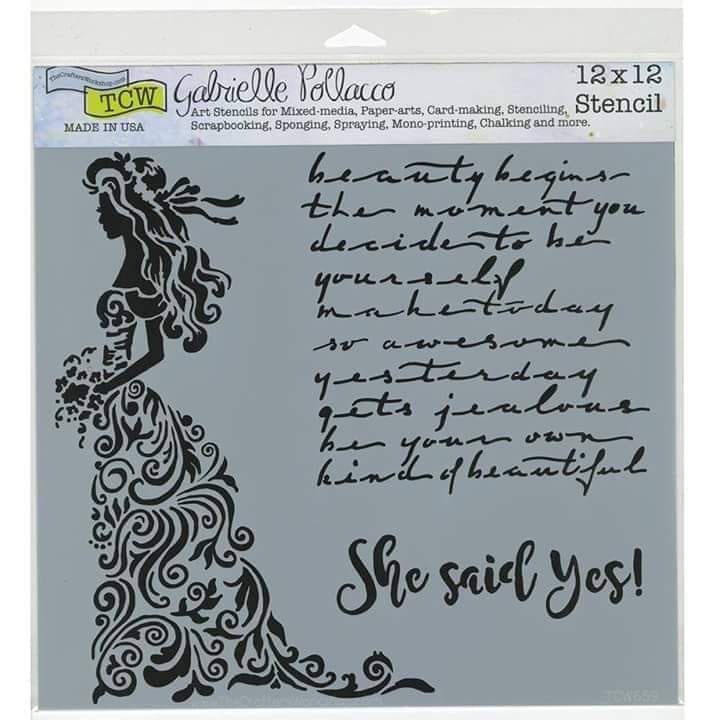 TheCraftersWorkshop.com
TCW
MADE IN USA
Gabrielle Pollacco
Art Stencils for Mixed-media, Paper-arts, Card-making, Stenciling,
Scrapbooking, Sponging, Spraying, Mono-printing, Chalking and more.
12x12
Stencil
beauty begins
the moment you
decide to be
yourself
make today
so awesome
yesterday
gets jealous
be your own
kind of beautiful
She said Yes!
TheCraftersWorkshop.com
TCW659